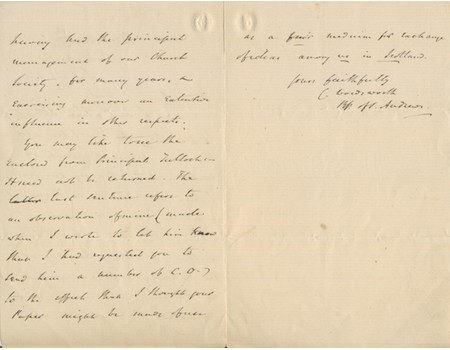 having had the principal
management of our Church
Society, for many years, &
exercising moreover an extensive
influence in other respects.
You may like to see the
enclosed from Principal Tulloch
It need not be returned. The
latter last sentence refers to
an observation of mine (made
when I wrote to let him know
that I had requested you to
send him a number of C.O.)
to the effect that I thought your
Paper might be made of use
as a fair medium for exchange
of ideas among us in Scotland.
Yours faithfully
C Wordsworth
Bp of St. Andrews.